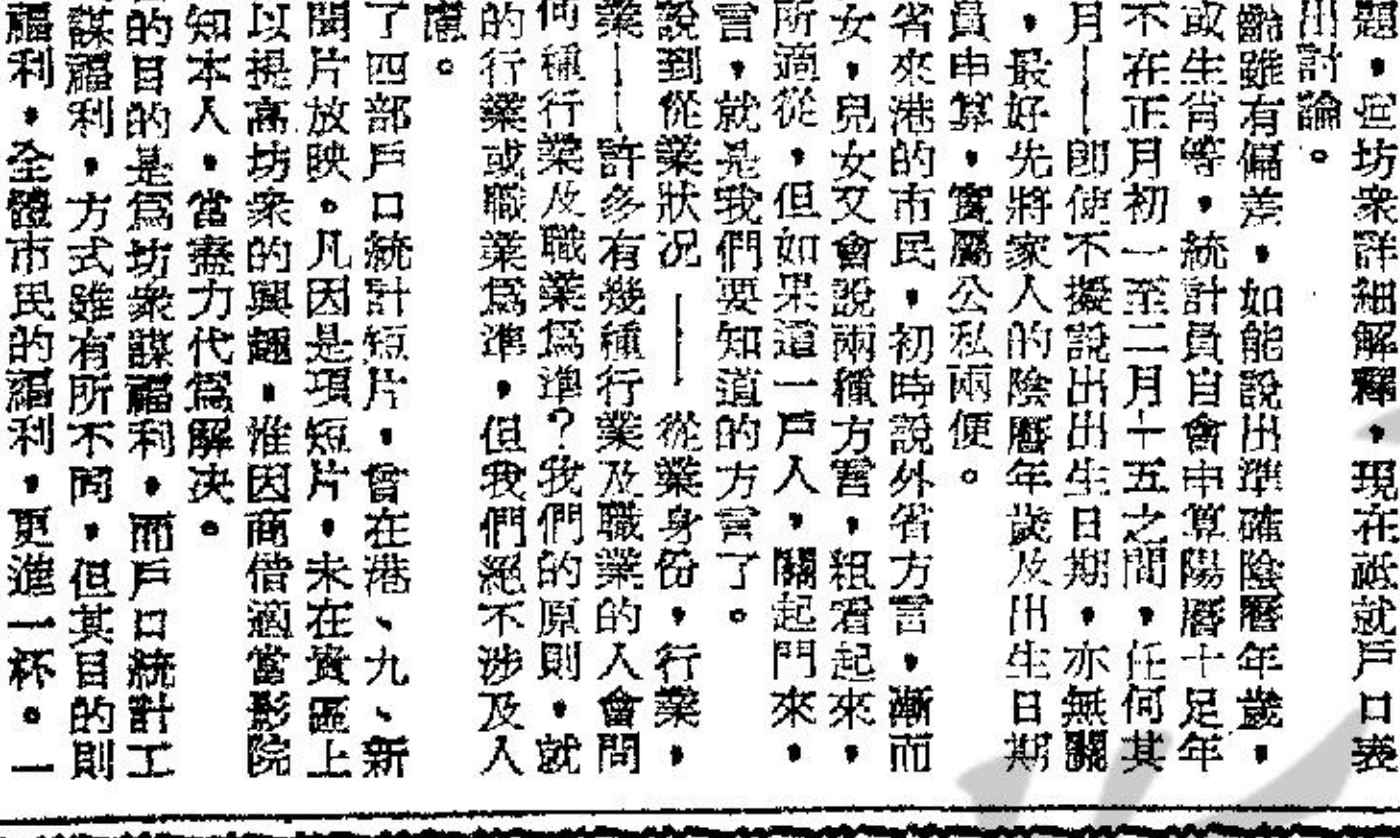 題，逐坊衆詳細解釋，現在祗就戶口表
出討論。
齡雖有偏差，如能說出準確陰曆年歲，
或生肖等，統計員自會申算陽曆十足年
不在正月初一至二月十五之間，任何其
月——卽使不擬說出出生日期，亦無關
，最好先將家人的陰曆年歲及出生日期
員申算，實屬公私兩便。
省來港的市民，初時說外省方言，漸而
女，兒女又會說兩種方言，粗看起來，
所適從，但如果這一戶人，關起門來，
言，就是我們要知道的方言了。
說到從業狀况——從業身份，行業，
業——許多有幾種行業及職業的人會問
何種行業及職業爲準？我們的原則，就
的行業或職業爲準，但我們絕不涉及人
慮。
了四部戶口統計短片，曾在港、九、新
聞片放映。凡因是項短片，未在貴區上
以提高坊衆的興趣，惟因商借適當影院
知本人，當盡力代爲解决。
的目的是爲坊衆謀福利，而戶口統計工
謀福利，方式雖有所不同，但其目的則
福利，全體市民的福利，更進一杯。一